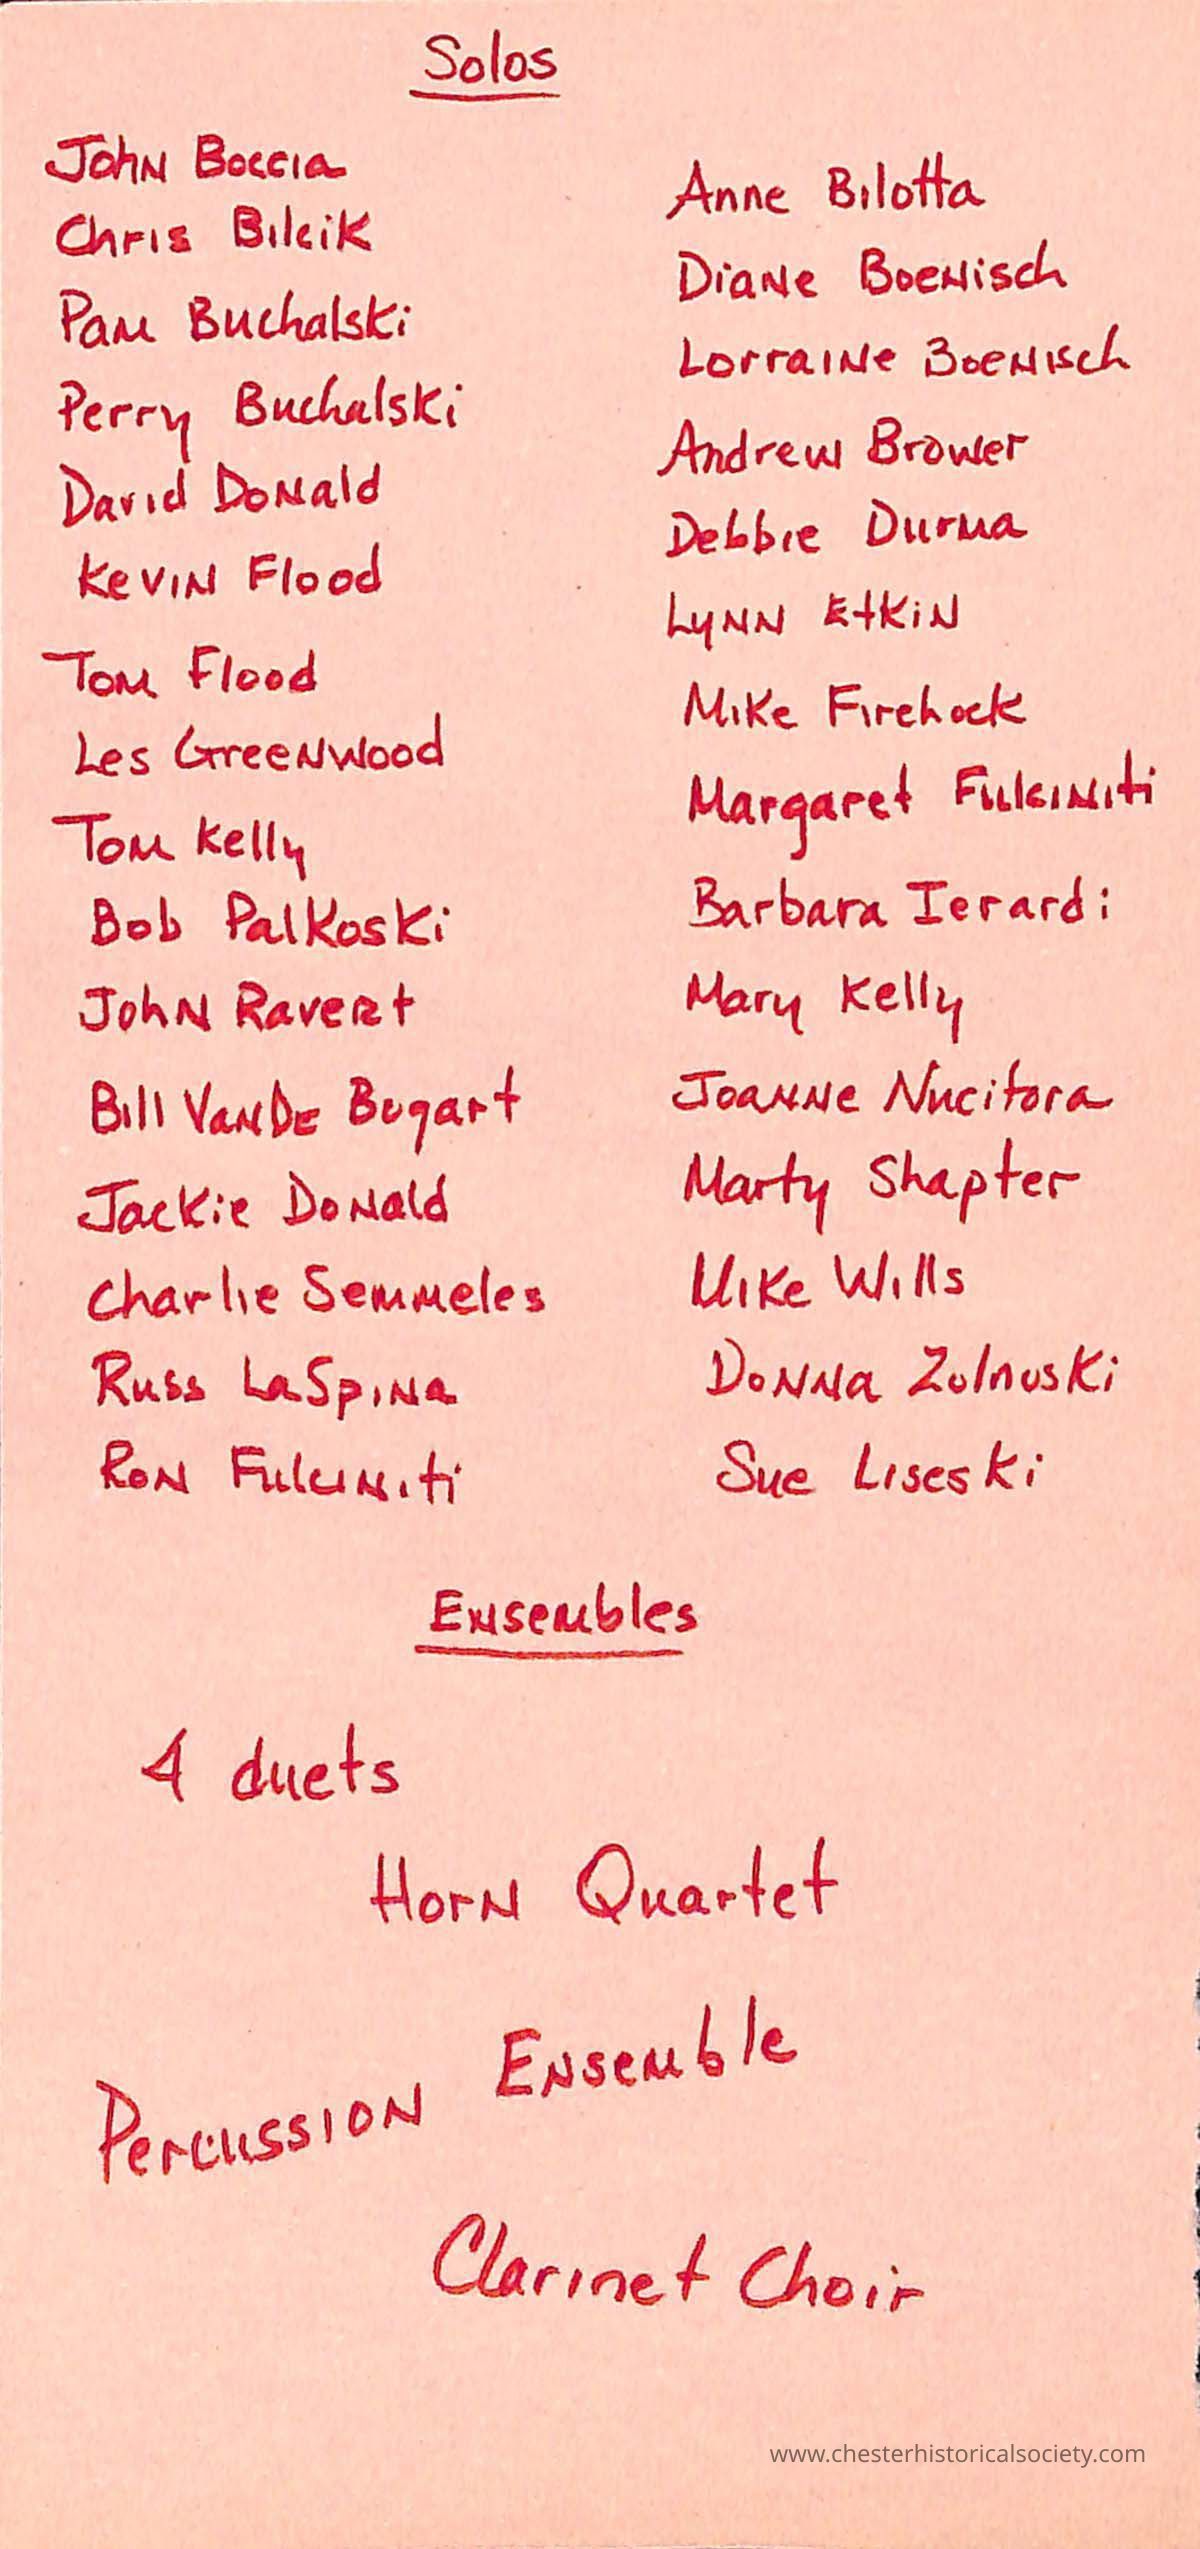 Solos
John Boccia
Chris Bilcik
Pam Buchalski
Perry Buchalski
David Donald
Kevin Flood
Tom Flood
Les Greenwood
Tom Kelly
Bob Palkoski
John Ravert
Bill VanDe Bogart
Jackie Donald
Charlie Semmeles
Russ LaSpina
Ron Fulciniti
Anne Bilotta
Diane Boenisch
Lorraine Boenisch
Andrew Brower
Debbie Durma
Lynn Etkin
Mike Firehock
Margaret Fulciniti
Barbara Ierardi
Mary Kelly
Joanne Nucitora
Marty Shapter
Mike Wills
Donna Zolnoski
Sue Liseski
Ensembles
4 duets
Horn Quartet
Percussion Ensemble
Clarinet Choir
www.chesterhistoricalsociety.com